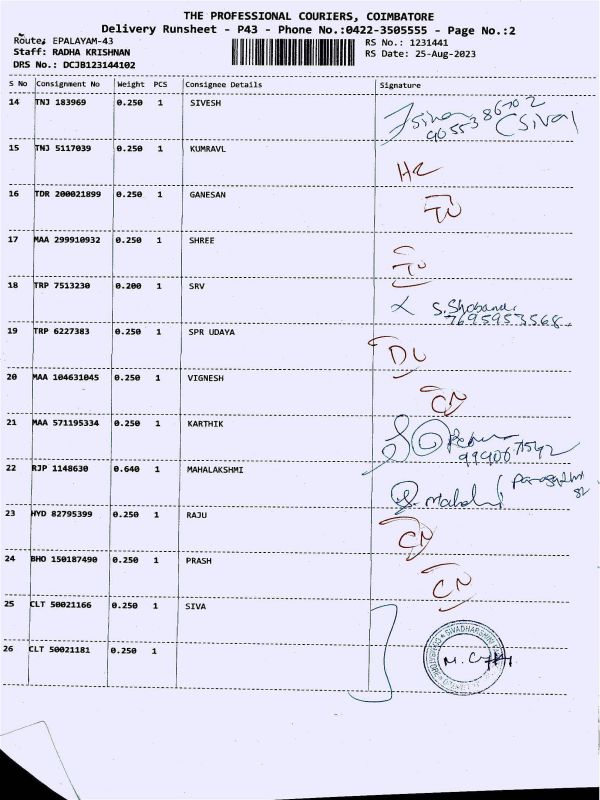 THE PROFESSIONAL COURIERS, COIMBATORE
Delivery Runsheet - P43 - Phone No.:0422-3505555 - Page No.:2
Route: EPALAYAM-43
RS No.: 1231441
Staff: RADHA KRISHNAN
RS Date: 25-Aug-2023
DRS No.: DCJB123144102
S No Consignment No Weight PCS Consignee Details Signature
14 TNJ 183969 0.250 1 SIVESH
15 TNJ 5117039 0.250 1 KUMRAVL
16 TDR 200021899 0.250 1 GANESAN
17 MAA 299910932 0.250 1 SHREE
18 TRP 7513230 0.200 1 SRV
S.Shobana
7695953568
19 TRP 6227383 0.250 1 SPR UDAYA
DL
20 MAA 104631045 0.250 1 VIGNESH
CN
21 MAA 571195334 0.250 1 KARTHIK
22 RJP 1148630 0.640 1 MAHALAKSHMI
23 HYD 82795399 0.250 1 RAJU
CN
24 BHO 150187490 0.250 1 PRASH
CN
25 CLT 50021166 0.250 1 SIVA
26 CLT 50021181 0.250 1